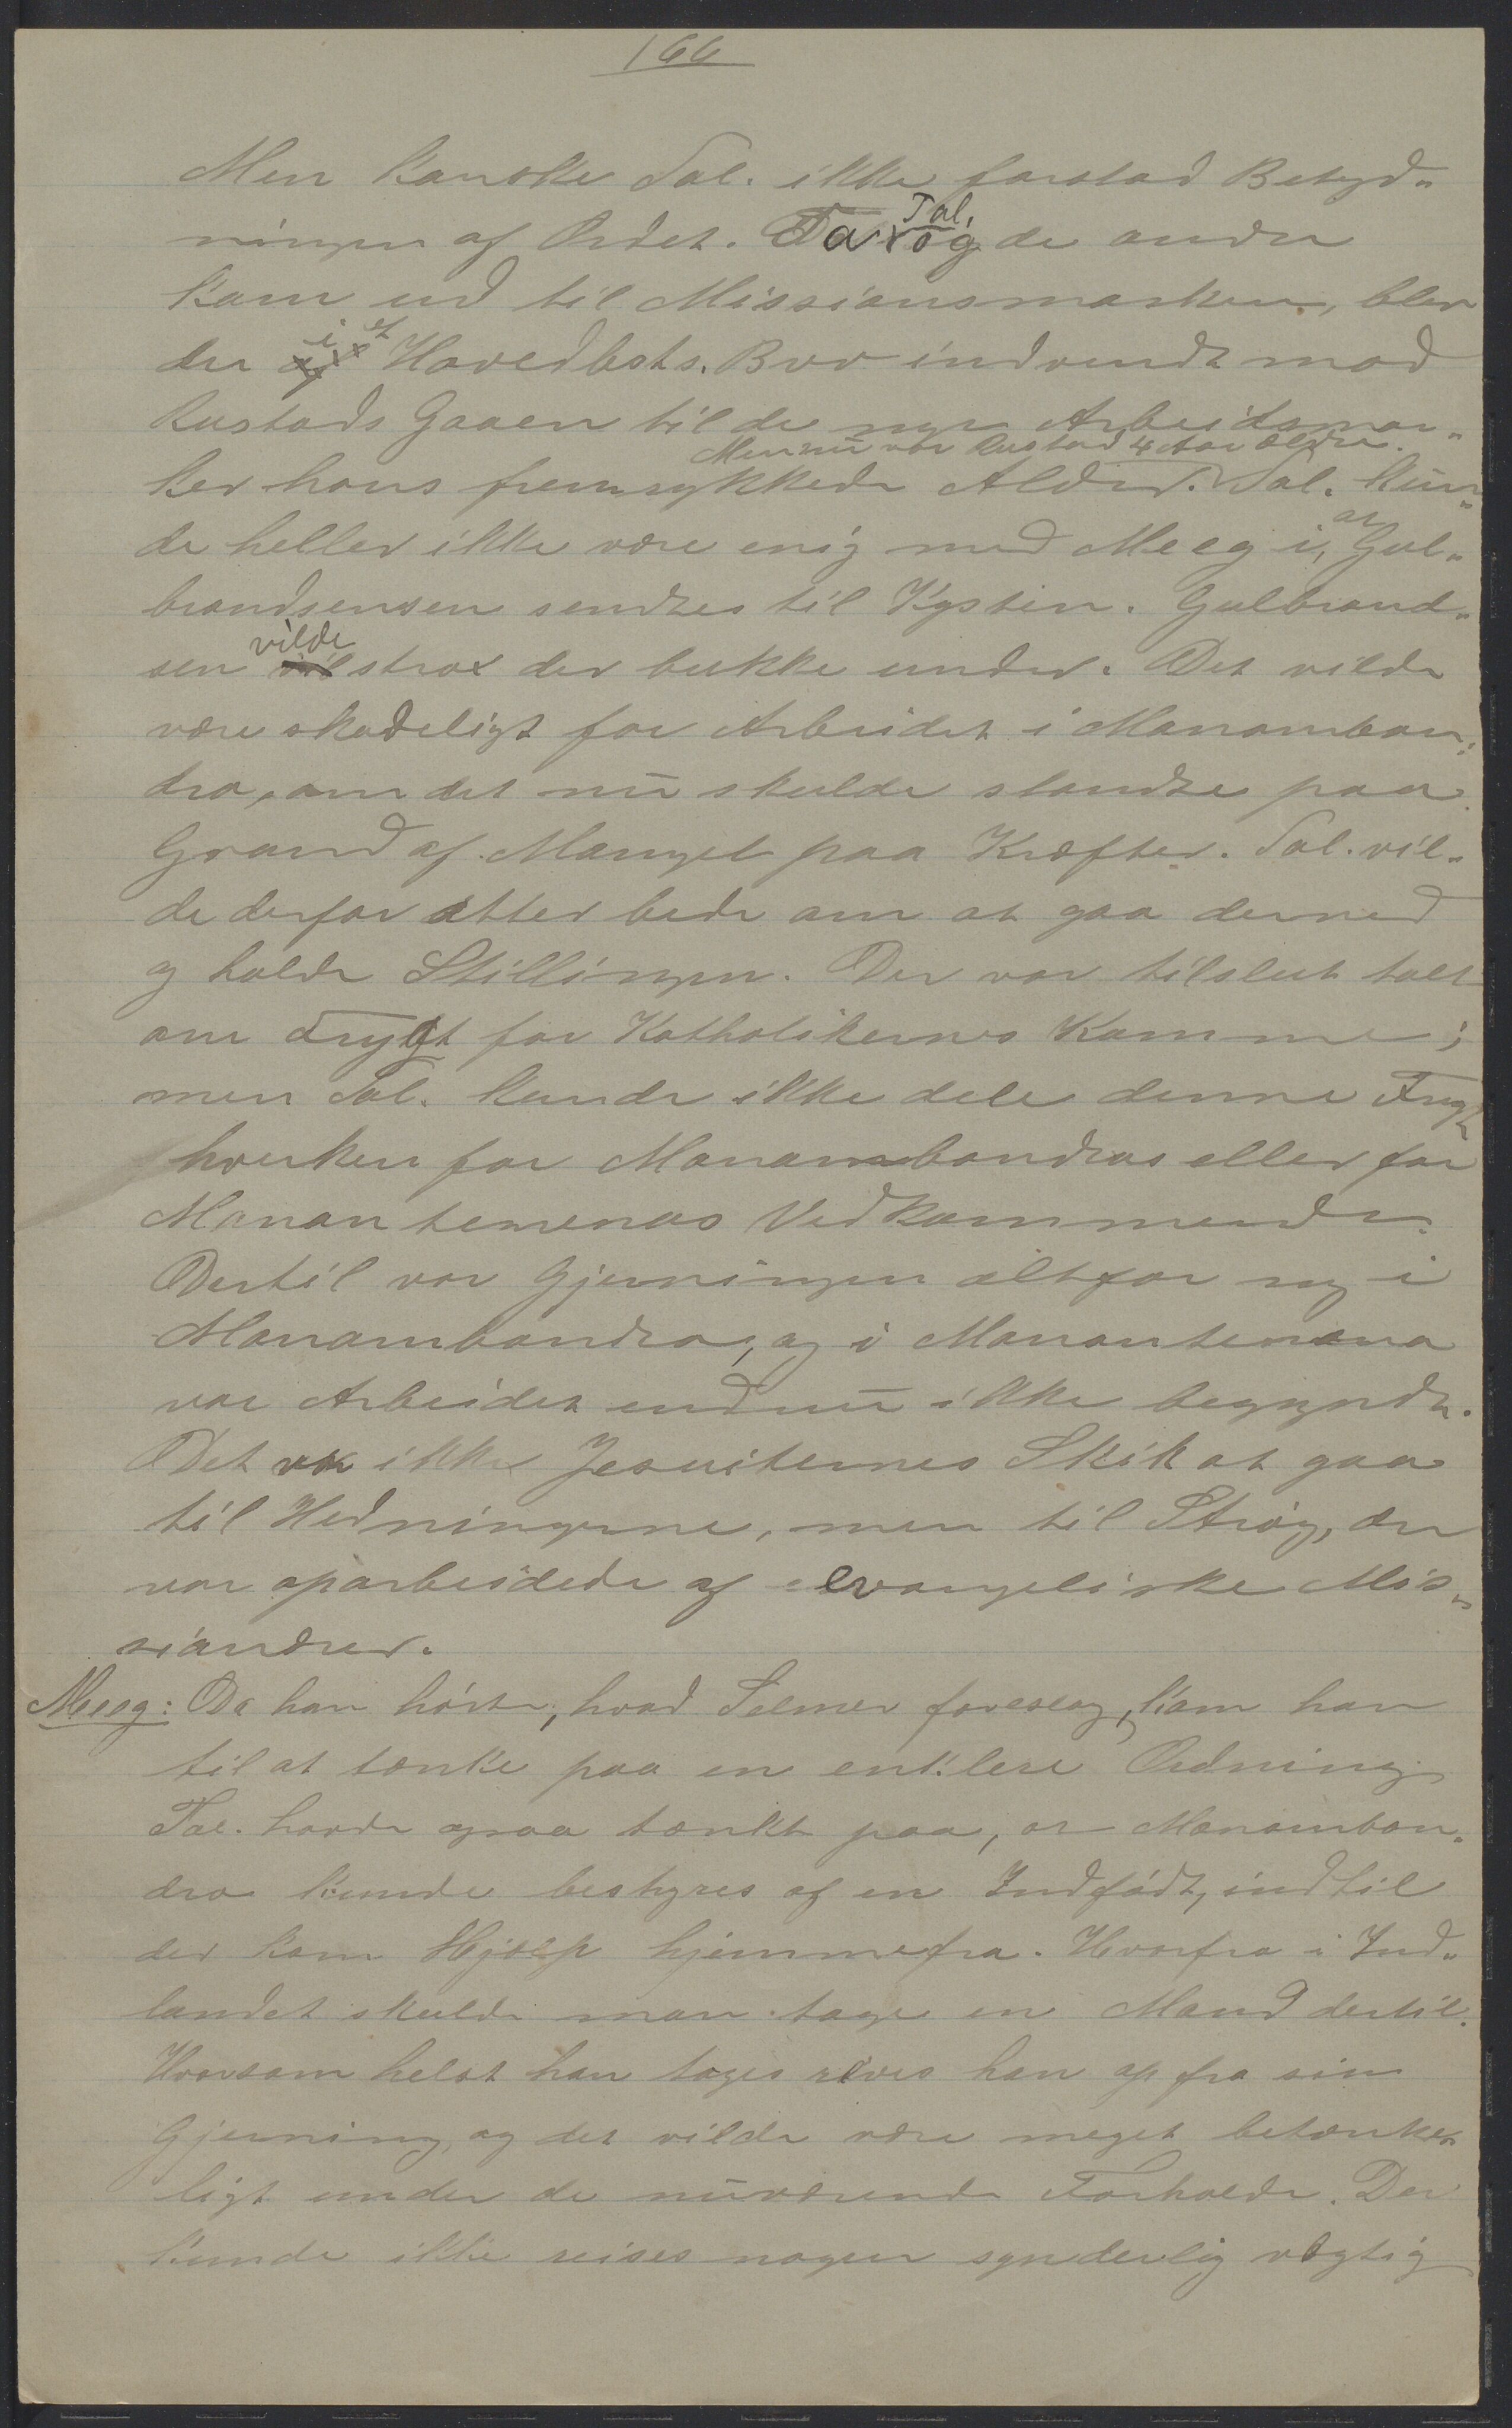 166
Men kanske Tal. ikke forstod Betyd„
ningen af Ordet. Da Tal. og de andre
kom ud til Missionsmarken, blev
der i et Hovedbsts. Brev indvendt mod
Rustads Gaaen til de nye Arbeidsmar„
Men nu var Rustad 4 Aar ældre.
ker hans fremrykkede Alder. Tal. kun„
de heller ikke være enig med Meeg i, at Gul„
brandsensen sendtes til Kysten. Gulbrand„
sen vilde strax der bukke under. Det vilde
være skadeligt for Arbeidet i Manamban„
dro, om det nu skulde standse paa
Grund af Mangel paa Kræfter. Tal. vil„
de derfor atter bede om at gaa derned
og holde Stillingen. Der var tilslut talt
om Frygt for Katholikernes Komme;
men Tal. kunde ikke dele denne Frygt
hverken for Manambondros eller for
Manantenenas Vedkommende.
Dertil var Gjerningen altfor ny i
Manambondro, og i Manantenena
var Arbeidet endnu ikke begyndt.
Det var ikke Jesuiternes Skik at gaa
til Hedningerne, men til Strøg, der
var oparbeidede af evangeliske Mis„
sionærer.
Meeg: Da han hørte, hvad Selmer foreslog, kom han
til at tænke paa en enklere Ordning.
Tal. havde ogsaa tænkt paa, at Manambon„
dro kunde bestyres af en Indfødt, indtil
der kom Hjælp hjemmefra. Hvorfra i Ind„
landet skulde man tage en Mand dertil.
Hvorsom helst han toges rives han op fra sin
Gjerning, og det vilde være meget betænke„
ligt under de nuværende Forholde. Der
kunde ikke reises nogen synderlig vægtig